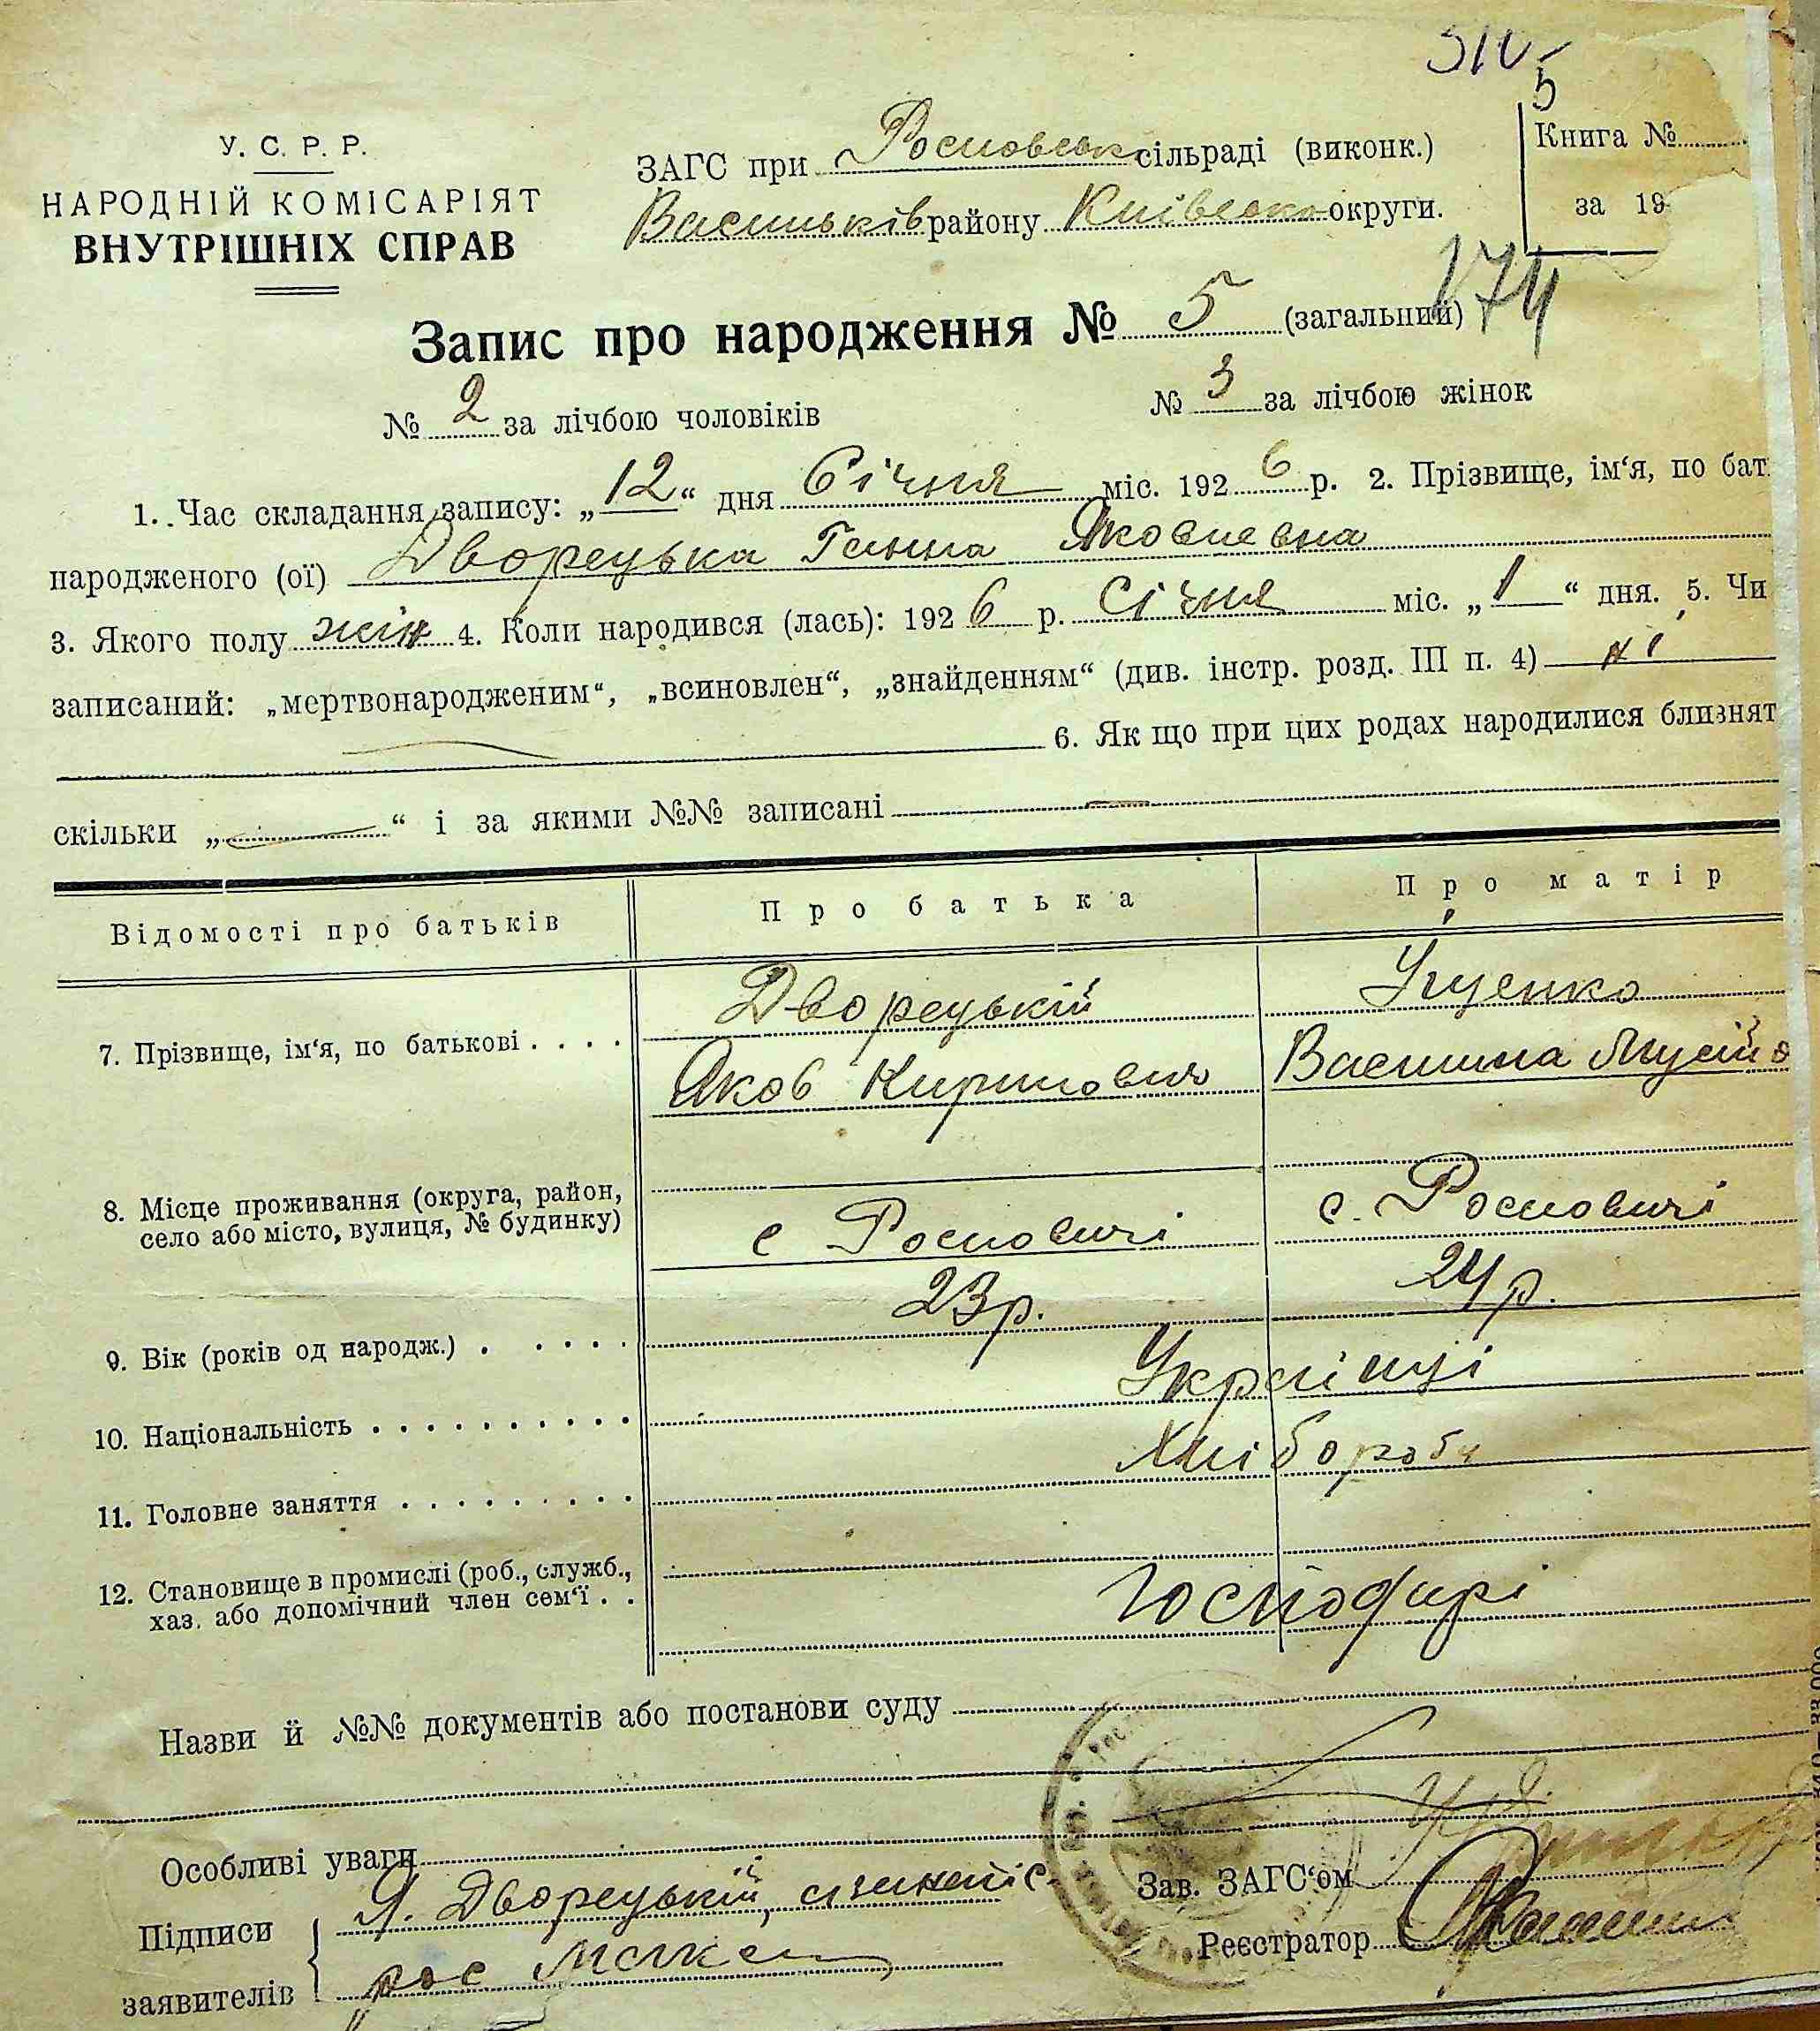 5
У. С. Р. Р.
НАРОДНІЙ КОМІСАРІЯТ
ВНУТРІШНІХ СПРАВ
ЗАГС при Росновськ сільраді (виконк.)
Васильків району Київсько округи.
Книга №
за 19
174
Запис про народження № 5 (загальний)
№ 2 за лічбою чоловіків № 3 за лічбою жінок
1. Час складання запису: „12“ дня Січня міс. 1926 р. 2. Прізвище, ім‘я, по бат
народженого (ої) Дворецька Ганна Яковлевна
3. Якого полу жін 4. Коли народився (лась): 1926 р. Січня міс. „1“ дня. 5. Чи
записаний: „мертвонародженим“, „всиновлен“, „знайденням“ (див. інстр. розд. III п. 4) ні
6. Як що при цих родах народилися близнят
скільки „ “ і за якими №№ записані
Відомості про батьків Про батька Про матір
Дворецькій Яценко
7. Прізвище, ім‘я, по батькові . . . .
Яков Кирилович Василина Мусій
8. Місце проживання (округа, район,
село або місто, вулиця, № будинку)
с Росновичі с. Росновичі
23р. 24р.
9. Вік (років од народж.) . . . . . .
Українці
10. Національність . . . . . . . . . .
Хлібороби
11. Головне заняття . . . . . . . . .
12. Становище в промислі (роб., служб.,
хаз. або допомічний член сем‘ї . .
Господарі
Назви й №№ документів або постанови суду
Особливі уваги
Підписи
заявителів
Я. Дворецькій,
Зав. ЗАГС‘ом
Реєстратор